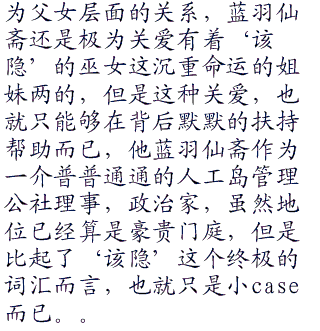 为父女层面的关系，蓝羽仙
斋还是极为关爱有着‘该
隐’的巫女这沉重命运的姐
妹两的，但是这种关爱，也
就只能够在背后默默的扶持
帮助而已，他蓝羽仙斋作为
一介普普通通的人工岛管理
公社理事，政治家，虽然地
位已经算是豪贵门庭，但是
比起了‘该隐’这个终极的
词汇而言，也就只是小case
而已。。